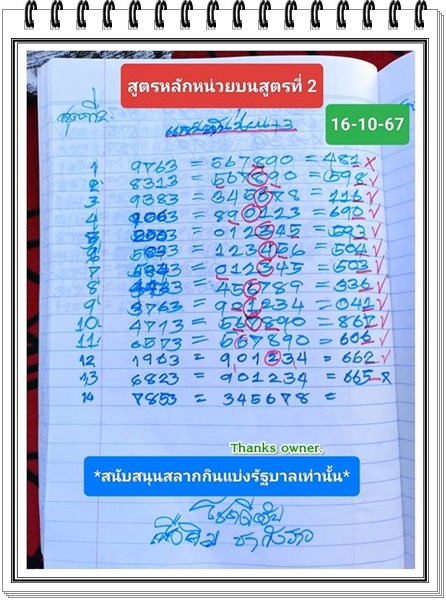 สูตรหลักหน่วยบนสูตรที่ 2
16-10-67
1 9763 = 567890 = 481 x
2 8313 = 567890 = 592 ✓
3 9383 = 345678 = 116 ✓
4 = 890123 = 690 ✓
5 = 012345 = 593 ✓
6 = 123456 = 504 ✓
7 = 012345 = 503 ✓
8 = 456789 = 636 ✓
9 3763 = 901234 = 041 ✓
10 4773 = 567890 = 867 ✓
11 6573 = 567890 = 606 ✓
12 1963 = 901234 = 662 ✓
13 6823 = 901234 = 665 x
14 7853 = 345678 =
Thanks owner.
*สนับสนุนสลากกินแบ่งรัฐบาลเท่านั้น*